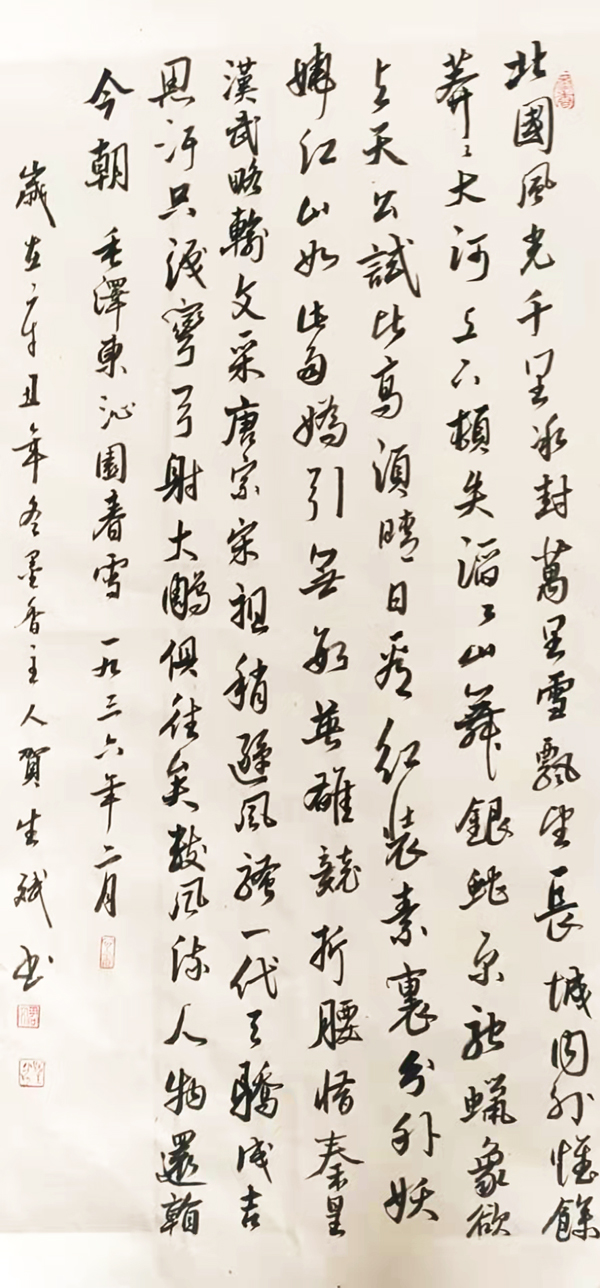 北國風光千里冰封萬里雪飄望長城内外惟餘
莽々大河上下頓失滔々山舞銀蛇原馳蠟象欲
与天公試比高須晴日看紅装素裹分外妖
嬈江山如此多嬌引無數英雄競折腰惜秦皇
漢武略輸文采唐宗宋祖稍遜風騷一代天驕成吉
思汗只識彎弓射大鵰俱往矣数風流人物還看
今朝 毛澤東沁園春雪 一九三六年二月
歲在辛丑年冬墨香主人賀生斌书